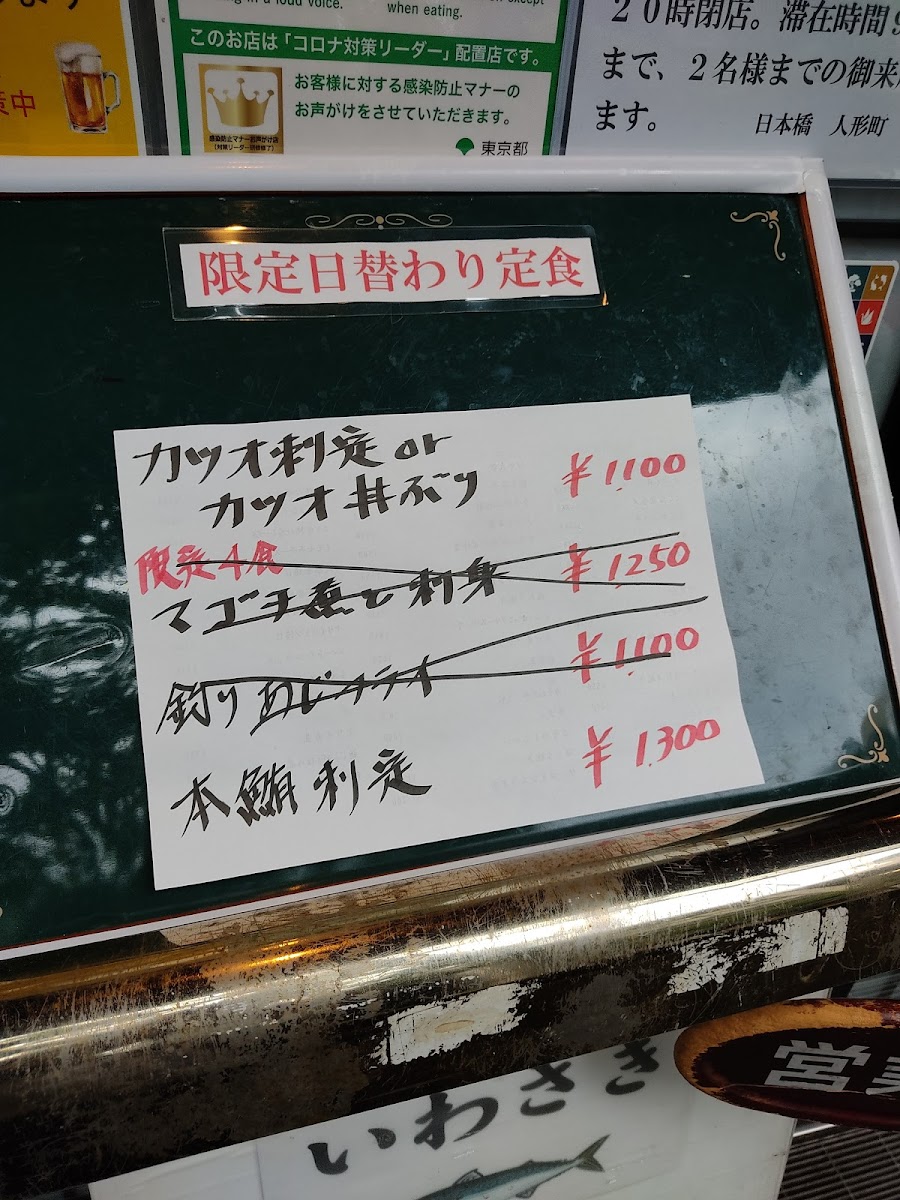 in a loud voice.
when eating.
このお店は「コロナ対策リーダー」配置店です。
お客様に対する感染防止マナーの
お声がけをさせていただきます。
感染防止マナーお声がけ店
【対策リーダー研修修了】
東京都
中
20時閉店。滞在時間9
まで、2名様までの御来
ます。
日本橋 人形町
限定日替わり定食
カツオ刺定or
カツオ丼ぶり ¥1,100
限定4食
マゴチ煮と刺身 ¥1,250
釣りあじフライ ¥1,100
本鮪刺定 ¥1,300
営業
いわさき